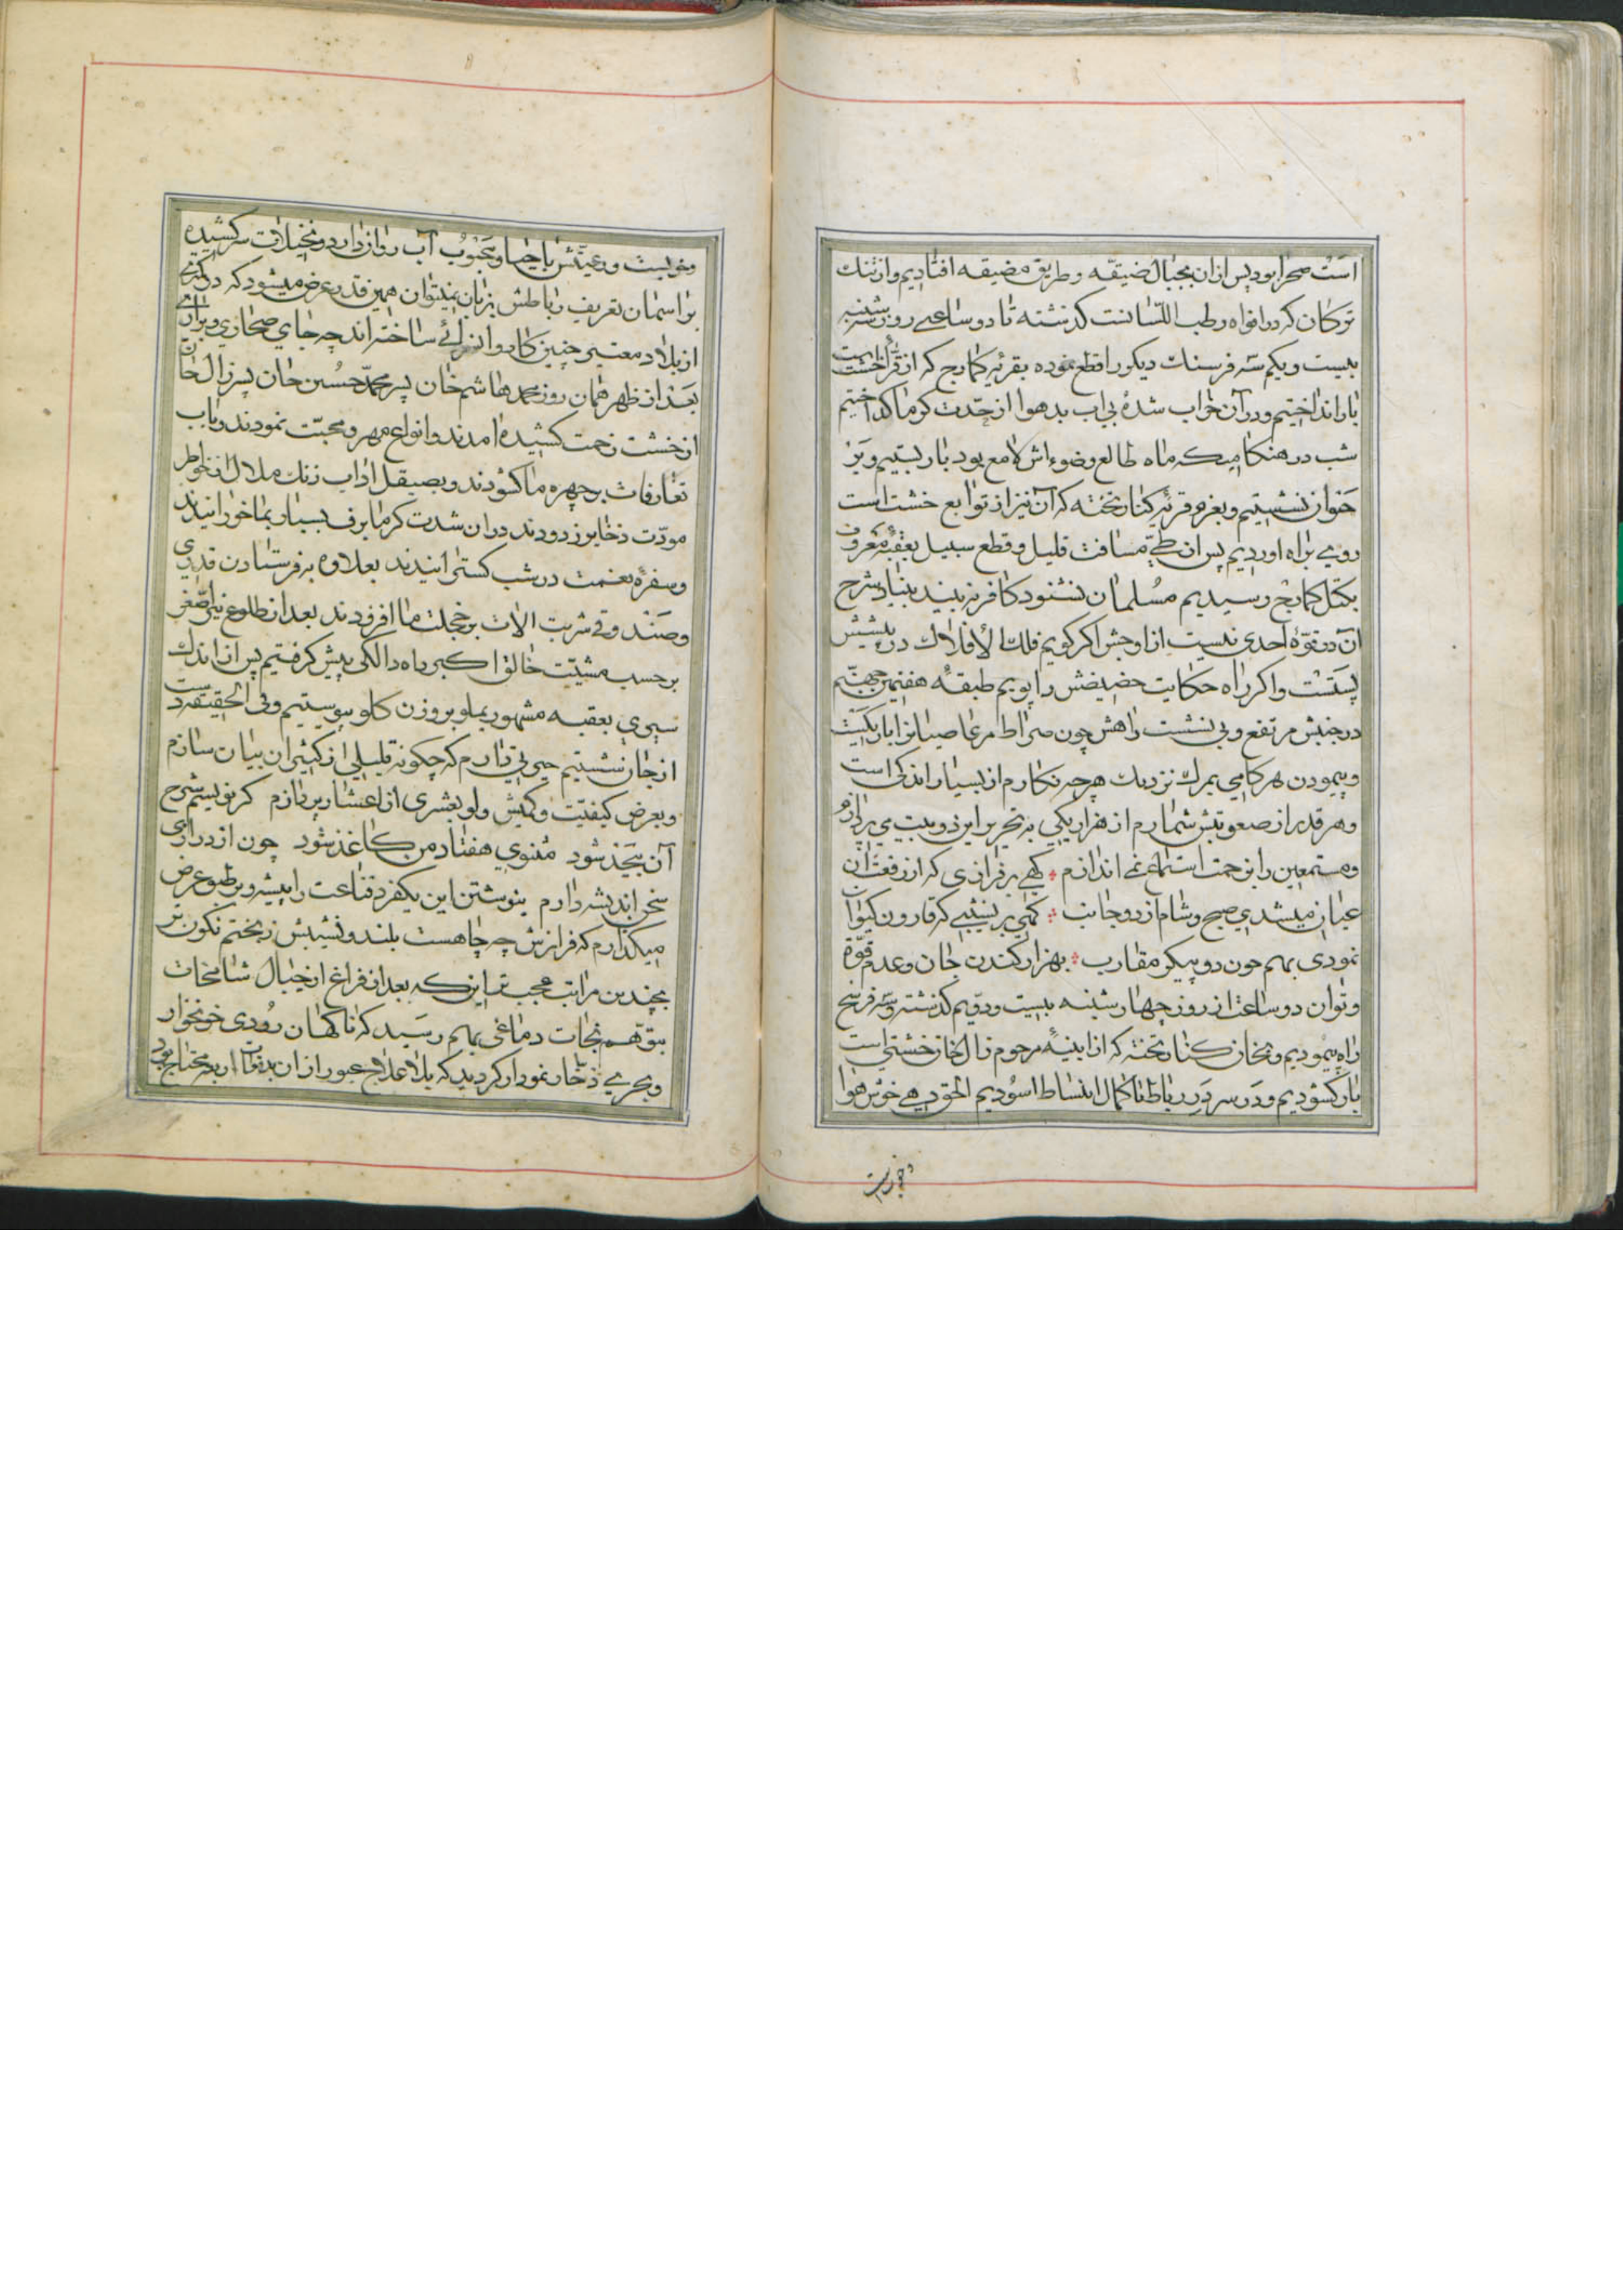 است صحرا بود پس از ان بجبال ضیقه و طریق مضیقه افتادیم و از تنك
ترکان که در افواه رطب اللسانست کذشته تا دو ساعتی روز سه شنبه
بیست و یکم سه فرسنك دیکر را قطع نموده بقریه کمارج که از قراء خشت است
بار انداختیم و در آن خراب شدهٔ بی اب بد هوا از حدت کرما کداختیم
شب در هنکامیکه ماه طالع و ضوء اش لامع بود بار بستیم و بر
خوان نشستیم و بعزم قریه کنار تخته که آن نیز از توابع خشت است
رویی براه اوردیم پس از طی مسافت قلیل و قطع سبیل بعقبهٔ معروف
بکتل کمارج رسیدیم مسلمان نشنود کافر نه بیند بنیاد شرح
آن در قوهٔ احدی نیست از اوجش اکر کویم فلك الافلاك در پیشش
پستست و اکر راه حکایت حضیضش را پویم طبقهٔ هفتمین جهنم
در جنبش مرتفع و بی نشست راهش چون صراط مر عاصیانرا باریکست
و پیمودن هر کامی بمرك نزدیك هر چه نکارم از بسیار اندکی است
و هر قدر از صعوبتش شمارم از هزار یکی به تحریر این دو بیت می پردازم
و مستمعین را بزحمت استماع می اندازم کهی بر فرازی که از رفعت آن
عیان میشدی صبح و شام از دو جانب کهی بر نشیبی که قارون کیوان
نمودی بهم چون دو پیکر مقارب بهزار کندن جان و عدم قوة
و توان دو ساعت از روز چهارشنبه بیست و دویم کذشته و سه فرسخ
راه پیمودیم و بخان کنار تخته که از ابنیهٔ مرحوم زال خان خشتی است
بار کشودیم و در سر در رباط تا کمال انبساط اسودیم الحق دهی خوش هوا
و غریبست
و غریبست و رعیتش با حیا و بجنوب آب روان دارد و نخیلات سر کشیده
بر اسمان تعریف رباطش بزبان نمیتوان همین قدر عرض میشود که در کمتری
از بلاد معتبر چنین کاروانسرائی ساخته اند چه جای صحاری و براری
بعد از ظهر همان روز محمد هاشم خان پسر محمد حسین خان پسر زال خان
از خشت زحمت کشیده امدند و انواع مهر و محبت نمودند و باب
تعارفات بر چهره ما کشودند و بصیقل اداب زنك ملال از خواطر
مودت ذخایر زدودند در ان شدت کرما برف بسیار بما خورانیدند
و سفرهٔ نعمت در شب کسترانیدند بعلاوه به فرستادن قدری
و صند و قی شربت الات بر خجلت ما افزودند بعد از طلوع نیر اصغر
بر حسب مشیت خالق اکبر راه دالکی پیش کرفتیم پس از اندك
سیری بعقبه مشهور بملو بر وزن کلو پیوستیم و فی الحقیقه دست
از جان شستیم حیرتی دارم که چکونه قلیلی از کثیر ان بیان سازم
و بعرض کیفیت و کمیش ولو بعشری از اعشار پردازم کر نویسم شرح
آن بیحد شود مثنوی هفتاد من کاغذ شود چون از درازی
سخن اندیشه دارم بنوشتن این یکفرد قناعت را پیشه و بر طبق عرض
میکذارم که فرازش چه چاهست بلند و نشیبش ز بختم نکون تر
بچندین مراتب عجب تر اینکه بعد از فراغ از جبال شامخات
بتوهم نجات دماغی بهم رسید که ناکهان رودی خونخوار
و بحری ذخار نمودار کردید که بلا علاج عبور از ان بدفعات اربعه محتاج بود